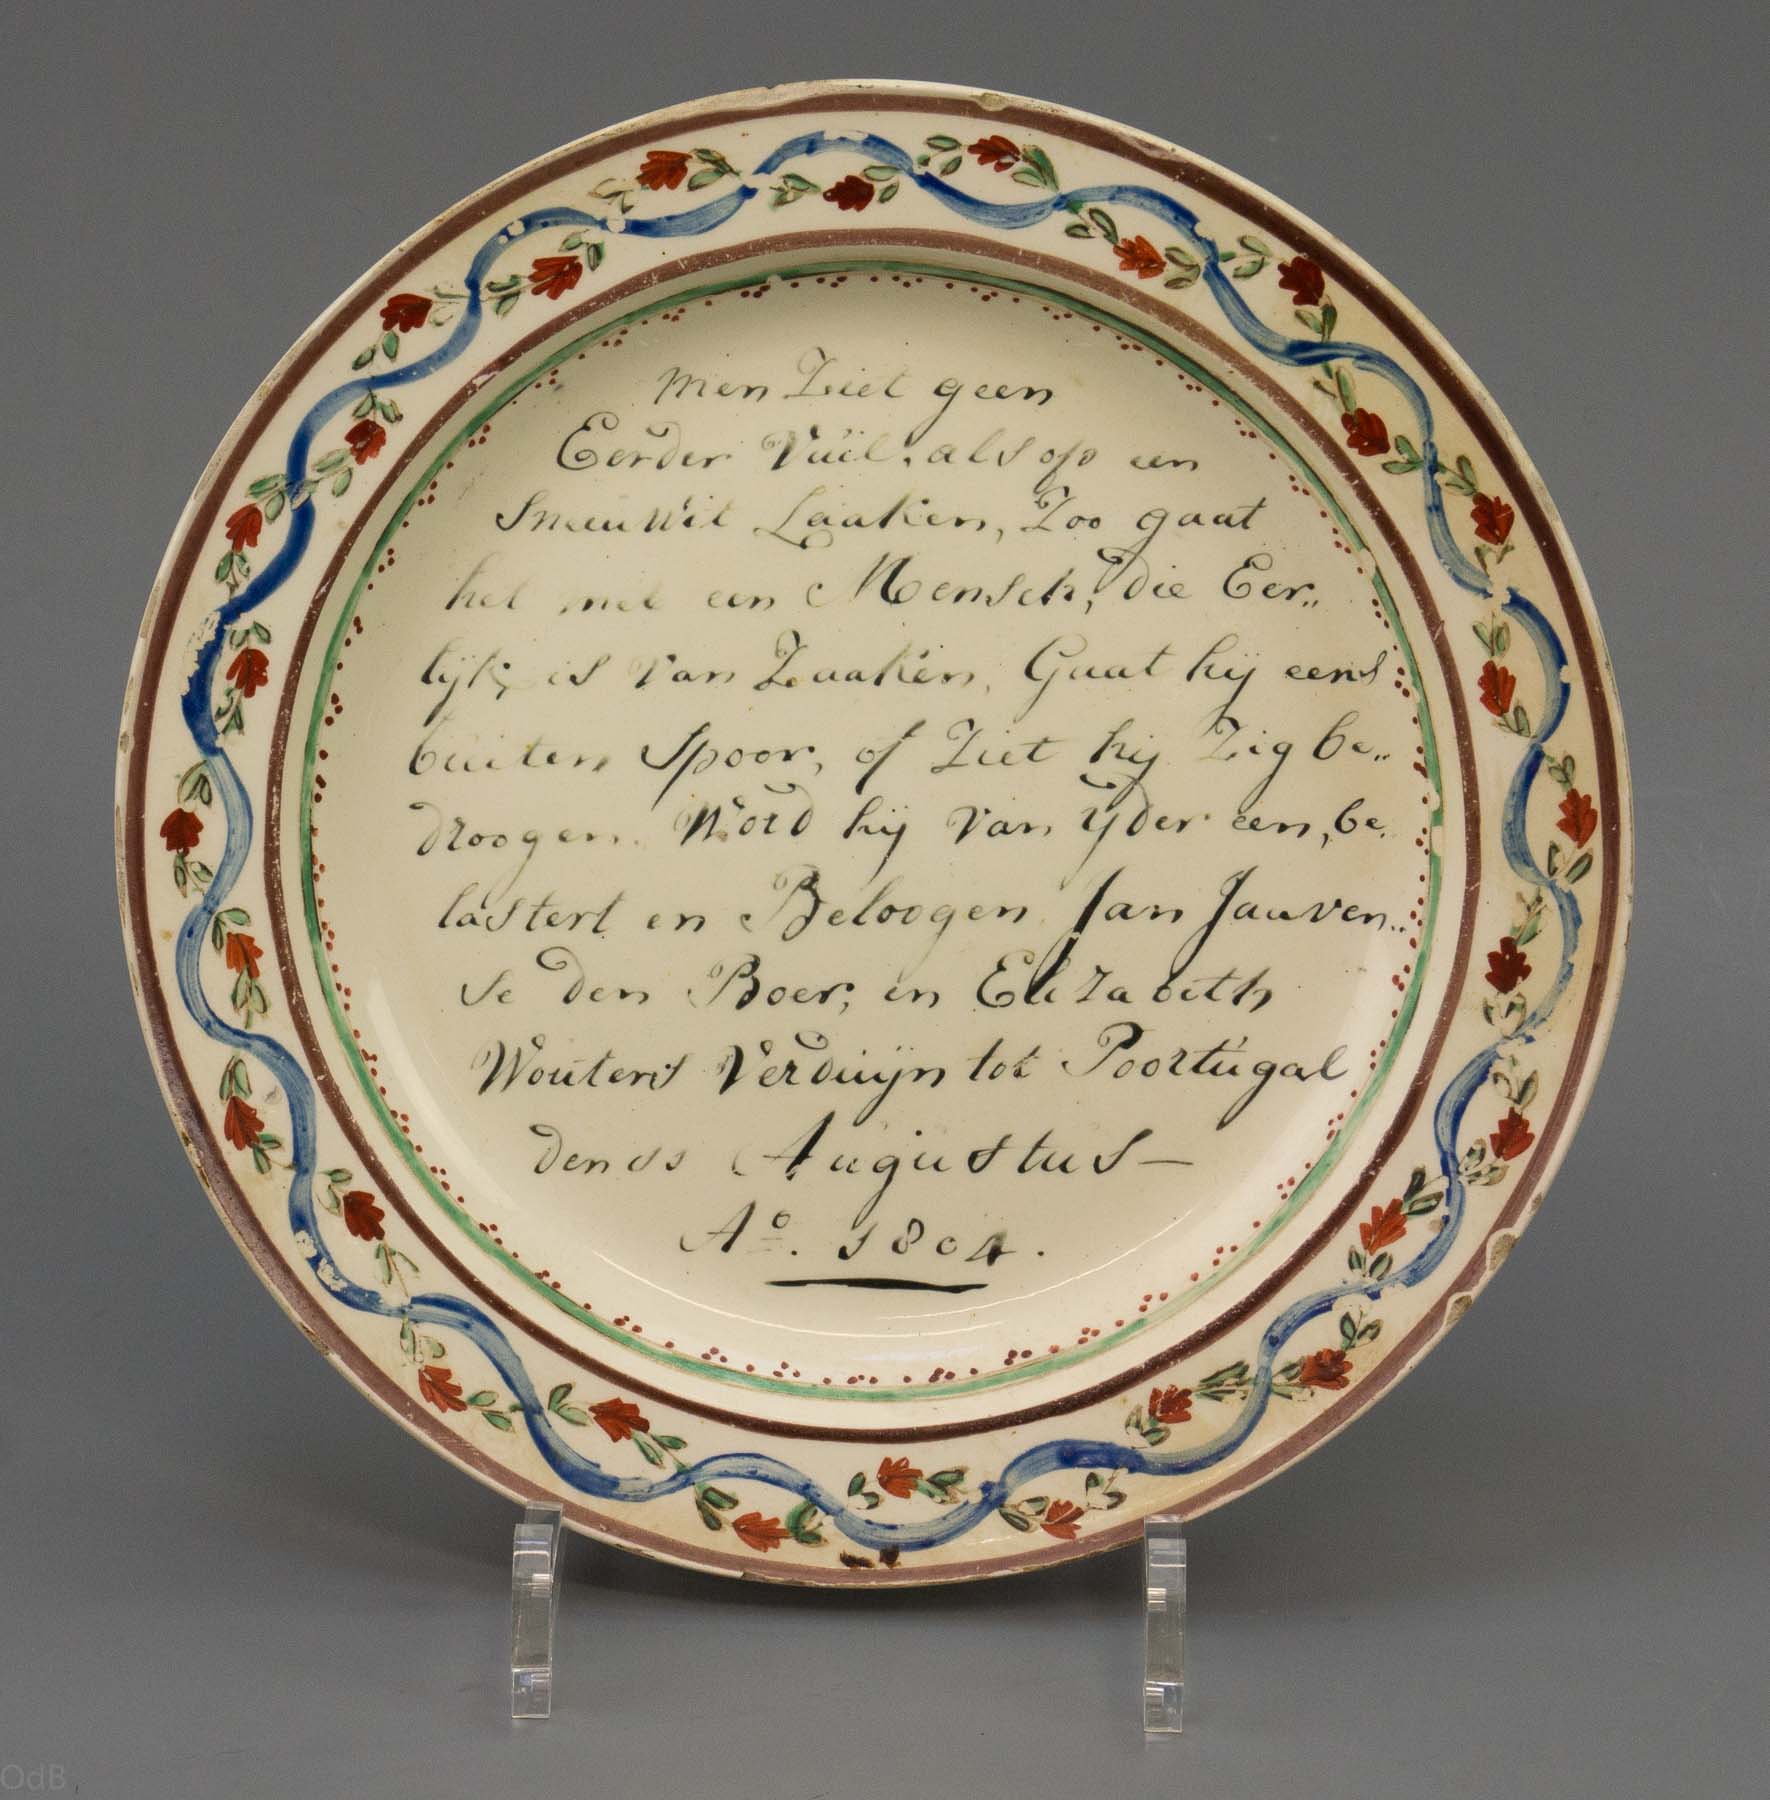 Men Ziet geen
Eerder Vuil, als op een
Sneeu Wit Laaken, Zoo gaat
het met een Mensch, die Eer„
lijk, is van Zaaken, Gaat hij eens
buiten Spoor, of Ziet hij Zig be„
droogen. Word hij van ijder een, be„
lastert en Beloogen Jan Jauven„
se den Boer, en Elizabeth
Wouters Verduijn tot Poortúgal
den Augustus—
Aº. 1804.
OdB